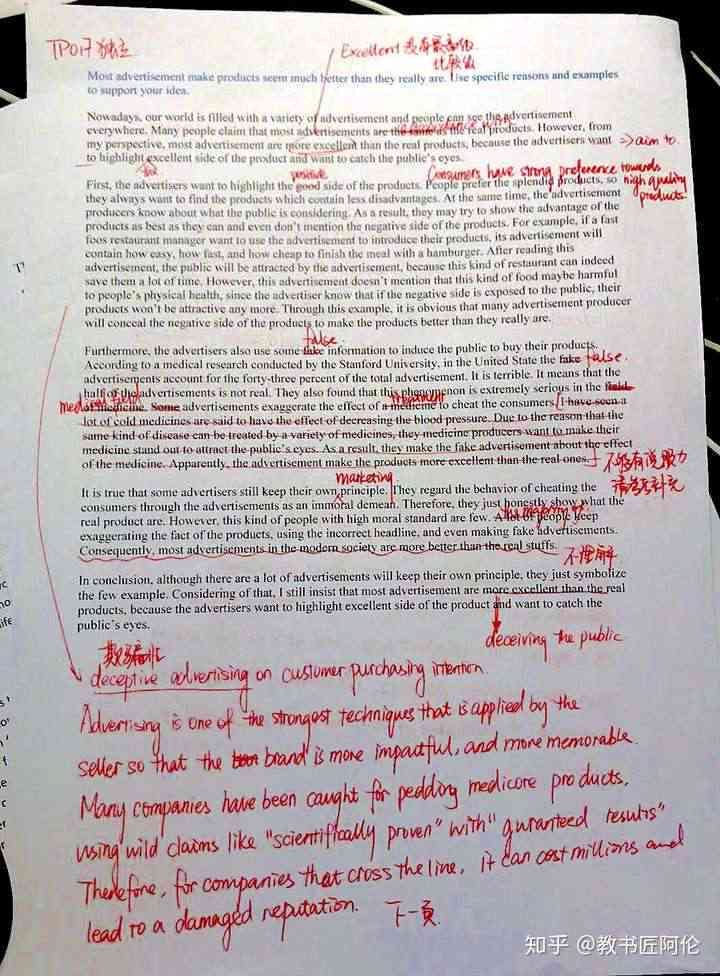 TPO17 独立
Excellent 没有最高级
比较级
Most advertisement make products seem much better than they really are. Use specific reasons and examples
to support your idea.
Nowadays, our world is filled with a variety of advertisement and people can see the advertisement
everywhere. Many people claim that most advertisements are the same as the real products. However, from
my perspective, most advertisement are more excellent than the real products, because the advertisers want => aim to
to highlight excellent side of the product and want to catch the public's eyes.
the
positive
Consumers have strong preference towards
high quality
products
First, the advertisers want to highlight the good side of the products. People prefer the splendid products, so
they always want to find the products which contain less disadvantages. At the same time, the advertisement
producers know about what the public is considering. As a result, they may try to show the advantage of the
products as best as they can and even don't mention the negative side of the products. For example, if a fast
foos restaurant manager want to use the advertisement to introduce their products, its advertisement will
contain how easy, how fast, and how cheap to finish the meal with a hamburger. After reading this
advertisement, the public will be attracted by the advertisement, because this kind of restaurant can indeed
save them a lot of time. However, this advertisement doesn't mention that this kind of food maybe harmful
to people's physical health, since the advertiser know that if the negative side is exposed to the public, their
products won't be attractive any more. Through this example, it is obvious that many advertisement producer
will conceal the negative side of the products to make the products better than they really are.
false
Furthermore, the advertisers also use some fake information to induce the public to buy their products.
According to a medical research conducted by the Stanford University, in the United State the fake false.
advertisements account for the forty-three percent of the total advertisement. It is terrible. It means that the
half of the advertisements is not real. They also found that this phenomenon is extremely serious in the field
medical field
of medicine. Some advertisements exaggerate the effect of a medicine to cheat the consumers. I have seen a
treatment
lot of cold medicines are said to have the effect of decreasing the blood pressure. Due to the reason that the
same kind of disease can be treated by a variety of medicines, they medicine producers want to make their
medicine stand out to attract the public's eyes. As a result, they make the fake advertisement about the effect
of the medicine. Apparently, the advertisement make the products more excellent than the real ones.
不够有说服力
marketing
It is true that some advertisers still keep their own principle. They regard the behavior of cheating the
consumers through the advertisements as an immoral demean. Therefore, they just honestly show what the
real product are. However, this kind of people with high moral standard are few. A lot of people keep
the majority of
exaggerating the fact of the products, using the incorrect headline, and even making fake advertisements.
Consequently, most advertisements in the modern society are more better than the real stuffs.
不理解
In conclusion, although there are a lot of advertisements will keep their own principle, they just symbolize
the few example. Considering of that, I still insist that most advertisement are more excellent than the real
products, because the advertisers want to highlight excellent side of the product and want to catch the
public's eyes.
deceiving the public
deceptive advertising on customer purchasing intention.
Advertising is one of the strongest techniques that is applied by the
seller so that the brand is more impactful, and more memorable.
Many companies have been caught for peddling medicore products,
using wild claims like "scientifically proven" with "guranteed results"
Therefore, for companies that cross the line, it can cost millions and
lead to a damaged reputation. 下一頁
知乎 @教书匠阿伦